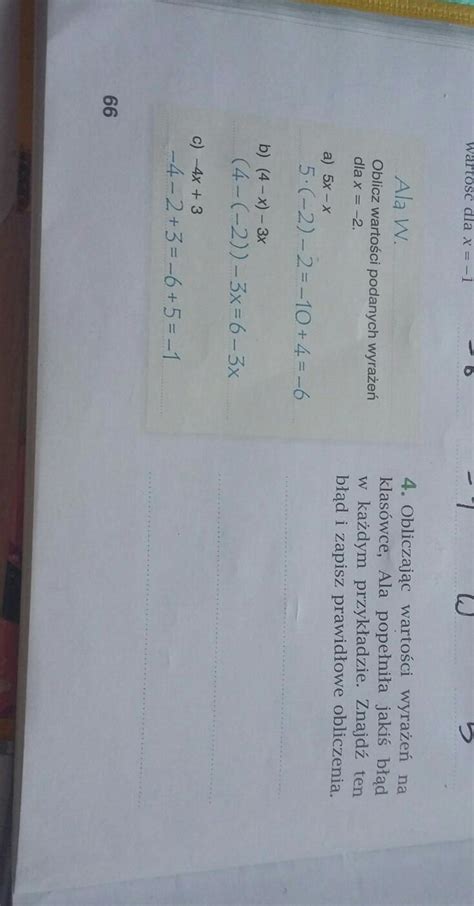 wartość dla x = -1
-7
5
4. Obliczając wartości wyrażeń na
klasówce, Ala popełniła jakiś błąd
w każdym przykładzie. Znajdź ten
błąd i zapisz prawidłowe obliczenia.
Ala W.
Oblicz wartości podanych wyrażeń
dla x = -2.
a) 5x - x
5·(-2) - 2 = -10 + 4 = -6
b) (4 - x) - 3x
(4 - (-2)) - 3x = 6 - 3x
c) -4x + 3
-4 - 2 + 3 = -6 + 5 = -1
66